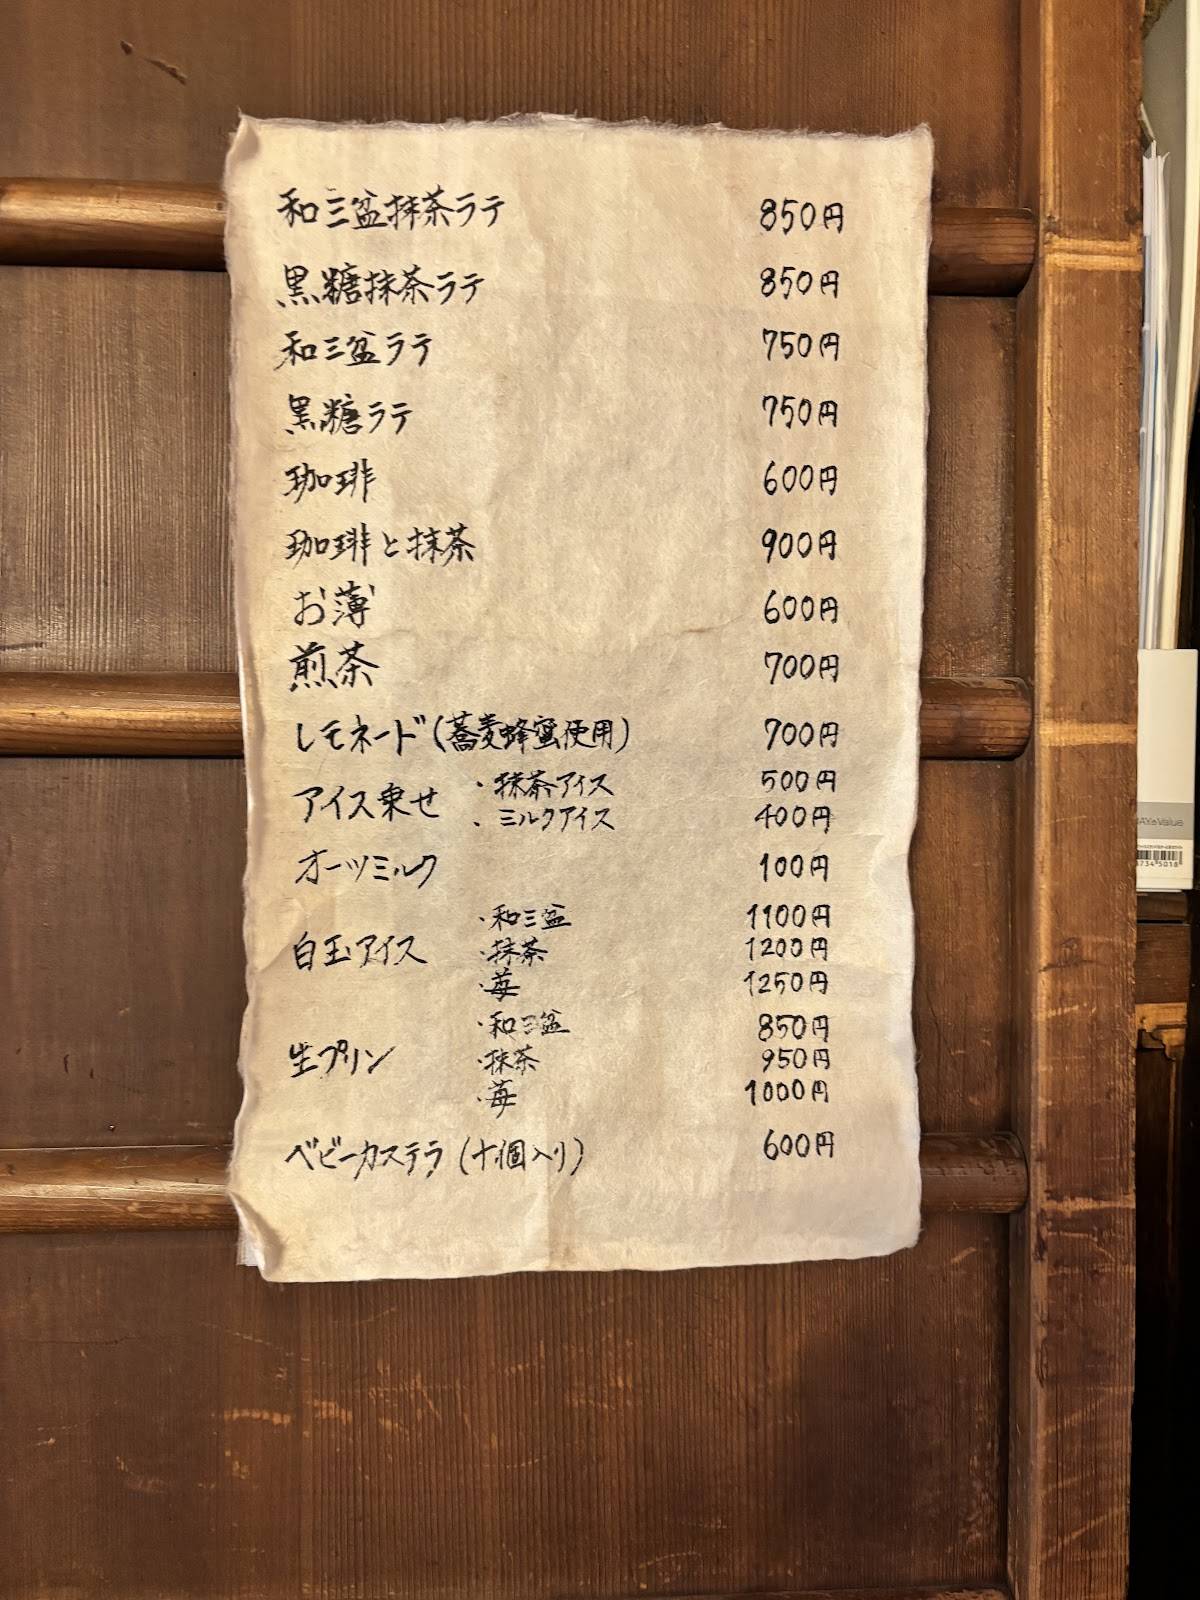 和三盆抹茶ラテ 850円
黒糖抹茶ラテ 850円
和三盆ラテ 750円
黒糖ラテ 750円
珈琲 600円
珈琲と抹茶 900円
お薄 600円
煎茶 700円
レモネード(蕎麦蜂蜜使用) 700円
アイス乗せ ・抹茶アイス 500円
・ミルクアイス 400円
オーツミルク 100円
白玉アイス ・和三盆 1100円
・抹茶 1200円
・苺 1250円
生プリン ・和三盆 850円
・抹茶 950円
・苺 1000円
ベビーカステラ(十個入り) 600円
AY&Value